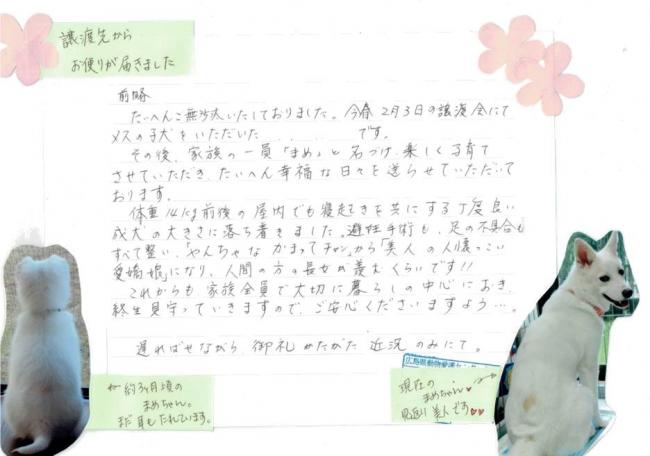 譲渡先から
お便りが届きました
前略
たいへんご無沙汰いたしておりました。今春2月3日の譲渡会にて
メスの子犬をいただいた . . . . です。
その後、家族の一員「まめ」と名づけ、楽しく子育て
させていただき、たいへん幸福な日々を送らせていただいて
おります。
体重14kg前後の屋内でも寝起きを共にする丁度良い
成犬の大きさに落ち着きました。避妊手術も、足の不具合も
すべて整い、「やんちゃなかまってチャン」から「美人の人懐っこい
愛嬌娘」になり、人間の方の長女が羨むくらいです!!
これからも、家族全員で大切に暮らしの中心におき、
終生見守っていきますので、ご安心くださいますよう…。
遅ればせながら、御礼かたがた近況のみにて。
広島県動物愛護センター
← 約3ヶ月頃の
まめちゃん。
まだ耳もたれています。
現在の →
まめちゃん
見返り美人です♥♥